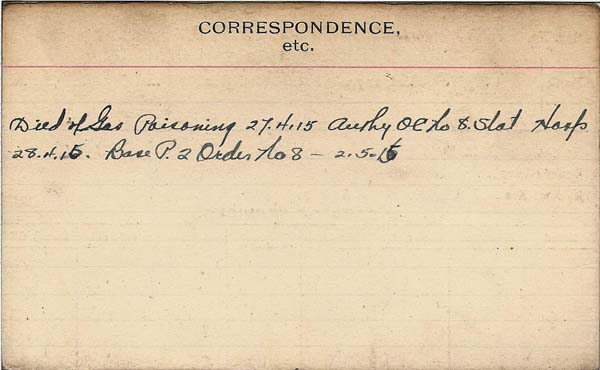 CORRESPONDENCE,
etc.
Died of Gas Poisoning 27.4.15 Authy OC No 8. Stat Hosp
28.4.15. Base P. 2 Order No 8 — 2.5.15